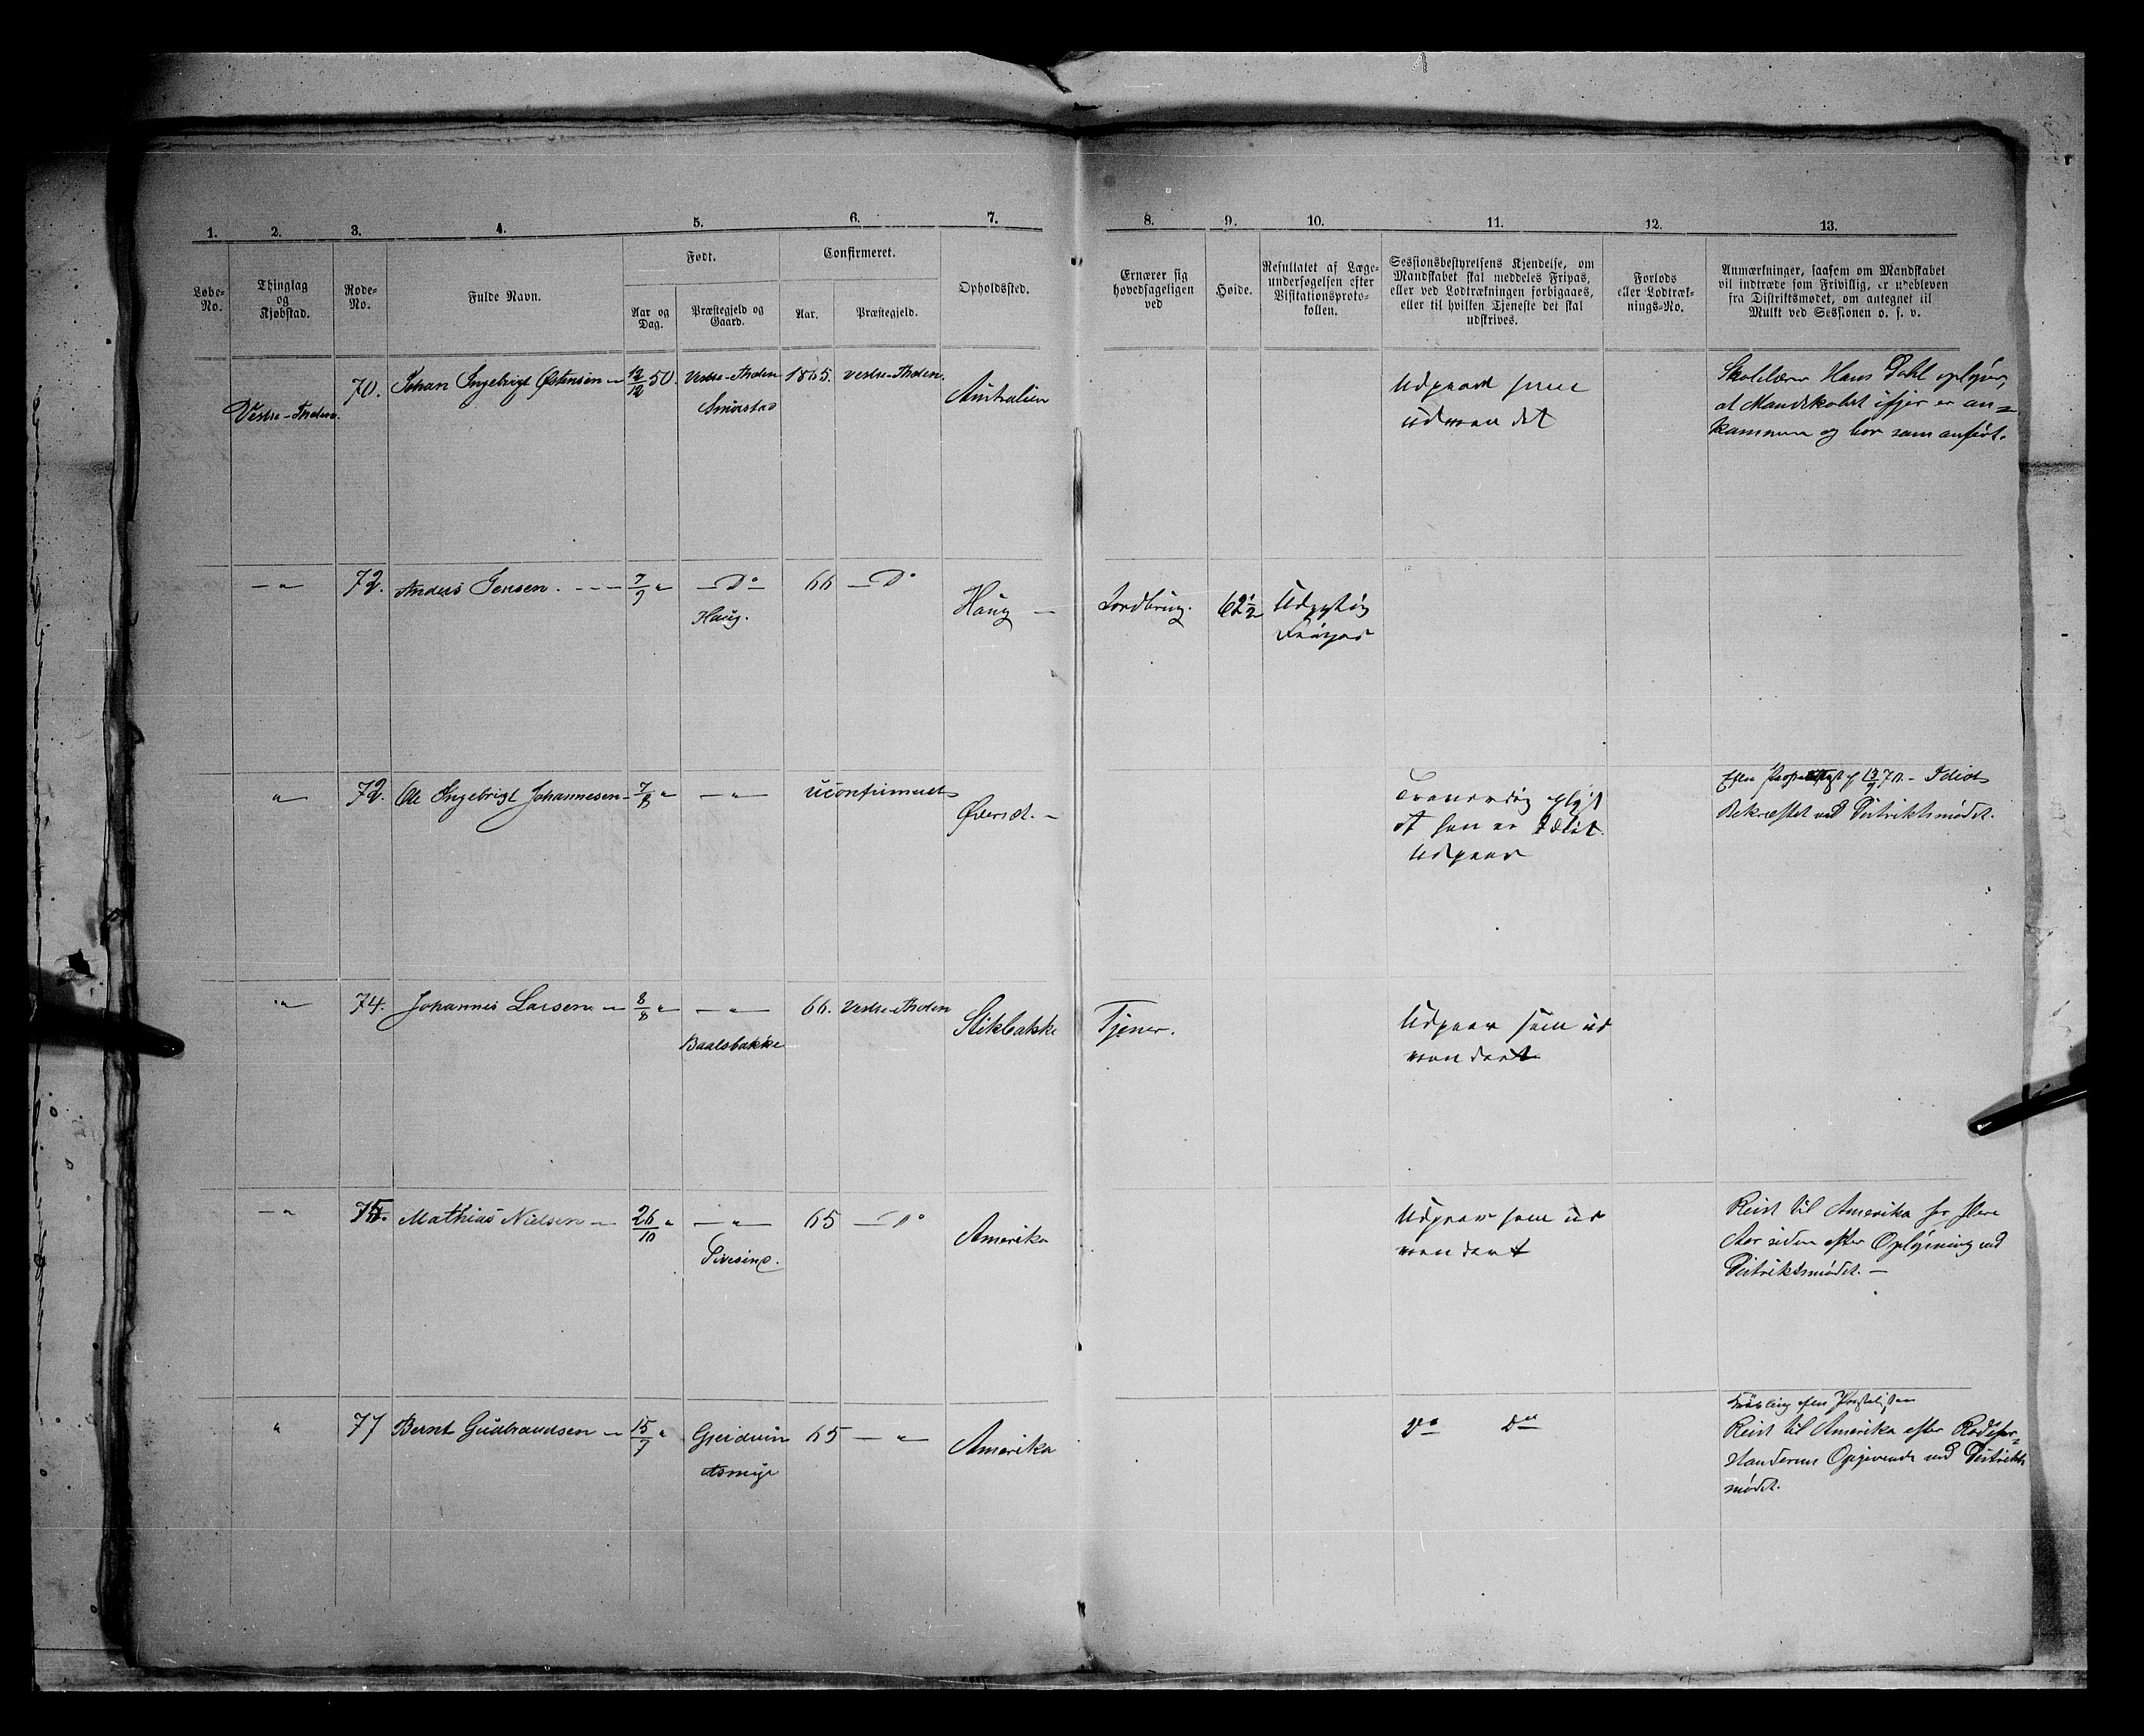 1. 2. 3. 4. 5. 6. 7. 8. 9. 10. 11. 12. 13.
Løbe-
No.
Thinglag
og
Kjøbstad.
Rode-
No.
Fulde Navn.
Født.
Aar og
Dag.
Præstegjeld og
Gaard.
Confirmeret.
Aar.
Præstegjeld.
Opholdssted.
Ernærer sig
hovedsageligen
ved
Høide.
Resultatet af Læge-
undersøgelsen efter
Visitationsproto-
kollen.
Sessionsbestyrelsens Kjendelse, om
Mandskabet skal meddeles Fripas,
eller ved Lodtrækningen forbigaaes,
eller til hvilken Tjeneste det skal
udskrives.
Forlods
eller Lodtræk-
nings-No.
Anmærkninger, saasom om Mandskabet
vil indtræde som Frivillig, er udebleven
fra Distriktsmødet, om antegnet til
Mulkt ved Sessionen o. s. v.
Vestre-Thoten.
70. Johan Ingebrigt Østensen 12/12 50. Vestre-Thoten 1865. Vestre-Thoten.
Smørstad
Australien
Udgaar som
udvandret
Skolelærer Hans Dahl oplyser,
at Mandskabet ifjor er an=
kommen og bor som anført.
— " 72. Anders Jensen. - - - 7/9 " — Do — 66 — Do
Haug.
Haug —
Jordbrug. 62½ Udygtig
" 72. Ole Ingebrigt Johannesen 7/8 " — " — uconfirmeret
Øverset. —
at han er Idiot.
Udgaar
Idiot
Bekræftet ved Distriktsmødet.
" 74. Johannes Larsen 8/8 " — " — 66. Vestre-Thoten
Baalsbakke
Stikbakke
Tjener.
Udgaar som ud
vandret
— " 75. Mathias Nielsen 26/10 " — " — 65 — Do
Amerika
Udgaar som ud
vandret
Reist til Amerika for flere
Aar siden efter Oplysning ved
Distriktsmødet. —
" 77 Bernt Gudbrandsen 15/7 " 65 — " —
Amerika
Do Do
Reist til Amerika efter Rodefor=
standerens Opgivende ved Distrikts
mødet.